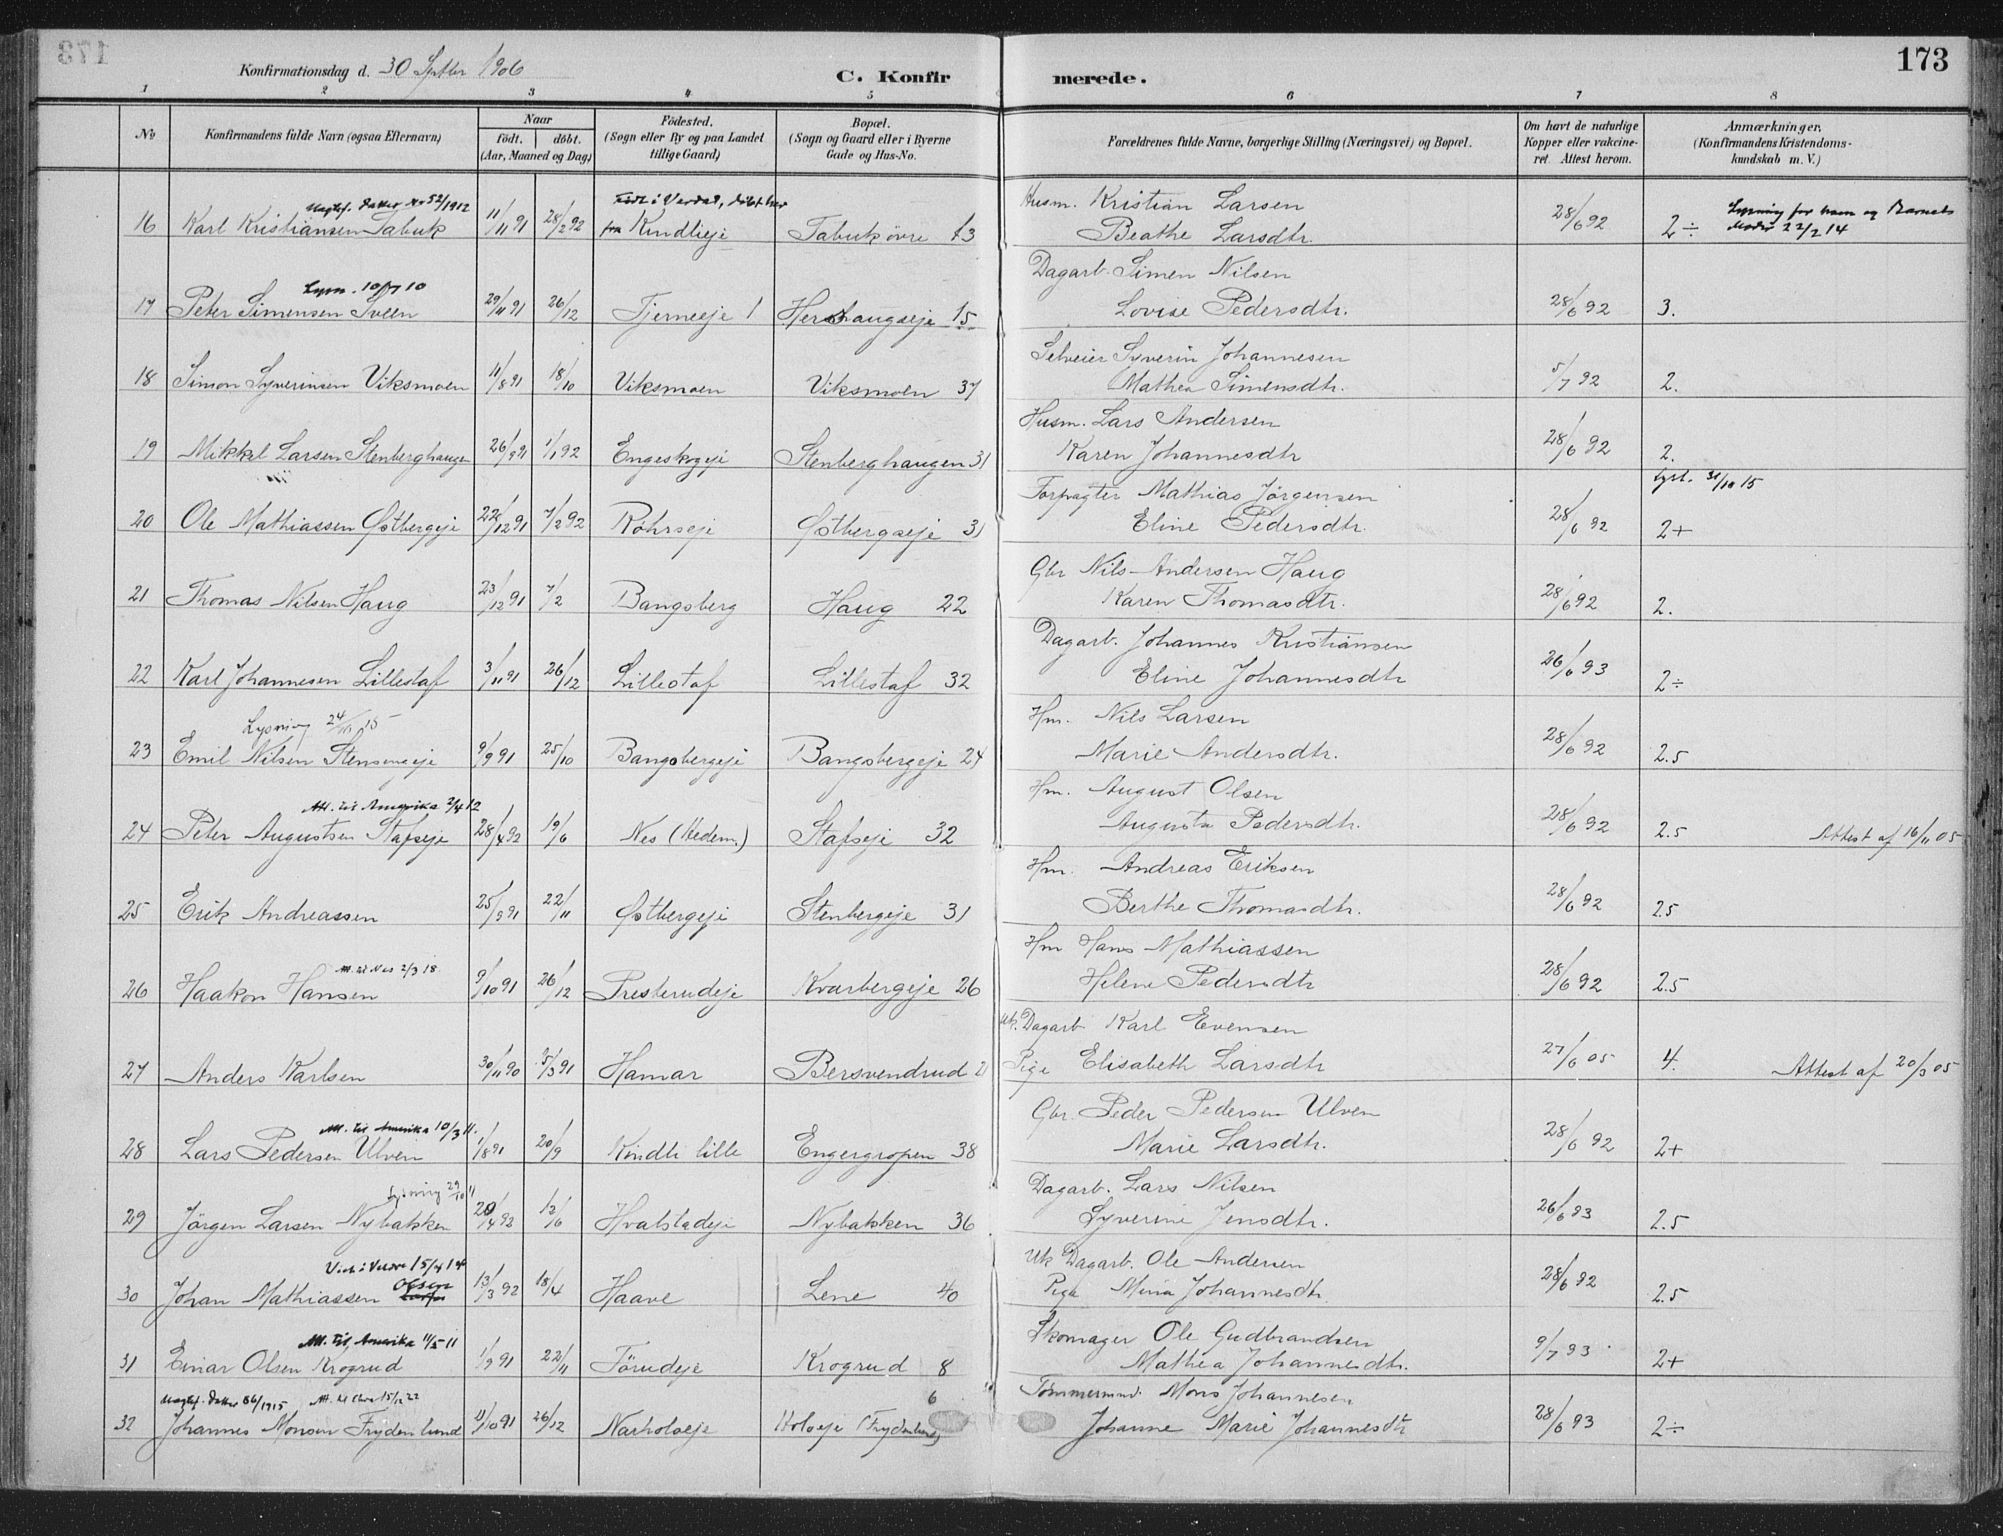 173
Konfirmationsdag d. 30 Septbr 1906
C. Konfirmerede.
173
1 2 3 4 5 6 7 8
No
Konfirmandens fulde Navn (ogsaa Efternavn)
Naar
födt. döbt.
(Aar, Maaned og Dag)
Födested.
(Sogn eller By og paa Landet
tillige Gaard)
Bopæl.
(Sogn og Gaard eller i Byerne
Gade og Hus-No.
Forældrenes fulde Navne, borgerlige Stilling (Næringsvei) og Bopæl.
Om havt de naturlige
Kopper eller vakcine-
ret. Attest herom.
Anmærkninger.
(Konfirmandens Kristendoms-
kundskab m. V.)
Uægtef. Datter No 52/1912 Født i Verdal, döbt her Husm. Kristian Larsen Lysning for ham og Barnets
16 Karl Kristiansen Tabuk 11/11 91 28/2 92 fra Kindlieje Tabuk övre 13 Beathe Larsdtr. 28/6 92 2÷ Moder 22/2 14
Lysn. 10/7 10 Dagarb. Simen Nilsen
17 Peter Simensen Sveen 29/11 91 26/12 Tjerneeje 1 Hershaugseje 15 Lovise Pedersdtr. 28/6 92 3.
Selveier Syverin Johannesen
18 Simon Syverinsen Viksmoen 11/8 91 18/10 Viksmoen Viksmoen 37 Mathea Simensdtr. 5/7 92 2.
Husm. Lars Andersen
19 Mikkel Larsen Stenberghaugen 26/9 91 1/1 92 Engeskogeje Stenberghaugen 31 Karen Johannesdtr 28/6 92 2.
Forpagter Mathias Jörgensen Lyst. 31/10 15
20 Ole Mathiassen Østbergeje 22/12 91 7/2 92 Röhrseje Østbergseje 31 Eline Pedersdtr. 28/6 92 2+
Gbr Nils Andersen Haug
21 Thomas Nilsen Haug 23/12 91 7/2 Bangsberg Haug 22 Karen Thomasdtr. 28/6 92 2.
Dagarb. Johannes Kristiansen
22 Karl Johannesen Lillestaf 3/11 91 26/12 Lillestaf Lillestaf 32 Eline Johannesdtr 26/6 93 2÷
Lysning 24/ 15 Hm. Nils Larsen
23 Emil Nilsen Stensengeje 9/9 91 25/10 Bangsbergeje Bangsbergeje 24 Marie Andersdtr. 28/6 92 2.5
Att. til Amerika 2/4 12 Hm. August Olsen
24 Peter Augustsen Stafseje 28/4 92 19/6 Nes (Hedem.) Stafseje 32 Augusta Pedersdtr. 28/6 92 2.5 Attest af 16/11 05
Hm. Andreas Eriksen
25 Erik Andreassen 25/9 91 22/11 Østbergeje Stenbergeje 31 Berthe Thomasdtr. 28/6 92 2.5
Att. til Nes 2/3 18 Hm Hans Mathiassen
26 Haakon Hansen 9/10 91 26/12 Presterudeje Kvarbergeje 26 Helene Pedersdtr 28/6 92 2.5
Uk. Dagarb Karl Evensen
27 Anders Karlsen 30/11 90 5/3 91 Hamar Bersvendrud 21 Pige Elisabeth Larsdtr 27/6 05 4. Attest af 20/3 05
Att. til Amerika 10/3 11. Gbr. Peder Pedersen Ulven
28 Lars Pedersen Ulven 1/8 91 20/9 Kindli lille Engergropen 38 Marie Larsdtr. 28/6 92 2+
Lysning 29/10 11 Dagarb. Lars Nilsen
29 Jörgen Larsen Nybakken 20/4 92 12/6 Hvalstadeje Nybakken 36 Syverine Jensdtr. 26/6 93 2.5
Viet i 15/4 14 Uk Dagarb. Ole Andersen
30 Johan Mathiassen Olsen 13/3 92 18/4 Haave Lene 40 Pige Mina Johannesdtr 28/6 92 2.5
Att. til Amerika 11/5 11 Skomager Ole Gudbrandsen
31 Einar Olsen Krogrud 1/9 91 22/11 Törudeje Krogrud 8 Mathea Johannesdtr. 9/7 93 2+
Uægtef. Datter 56/1915 Att. til Chra 15/12 22 6 Tömmermd. Mons Johannesen
32 Johannes Monsen Frydenlund 11/10 91 26/12 Narholseje Holseje (Frydenlund) Johanne Marie Johannesdtr 28/6 93 2÷